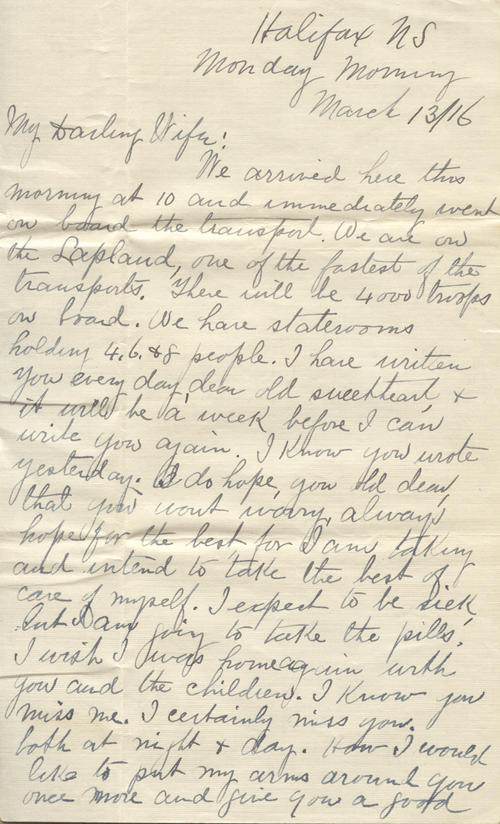 Halifax NS
Monday Morning
March 13/16
My Darling Wife:
We arrived here this
morning at 10 and immediately went
on board the transport. We are on
the Lapland, one of the fastest of the
transports. There will be 4000 troops
on board. We have staterooms
holding 4, 6, & 8 people. I have written
you every day, dear old sweetheart, &
it will be a week before I can
write you again. I know you wrote
yesterday. I do hope, you old dear,
that you wont worry, always
hope for the best for I am taking
and intend to take the best of
care of myself. I expect to be sick
but I am going to take the pills.
I wish I was home again with
you and the children. I know you
miss me. I certainly miss you.
both at night & day. How I would
like to put my arms around you
once more and give you a good